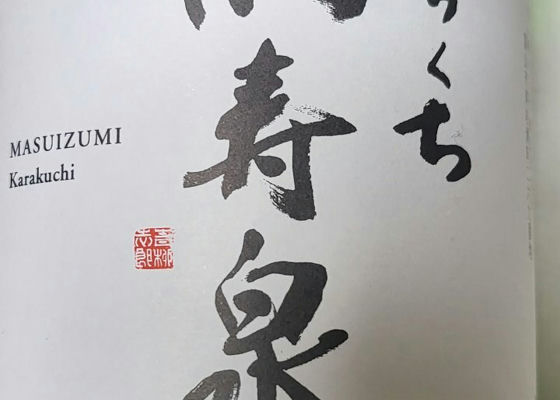 くち
寿泉
MASUIZUMI
Karakuchi